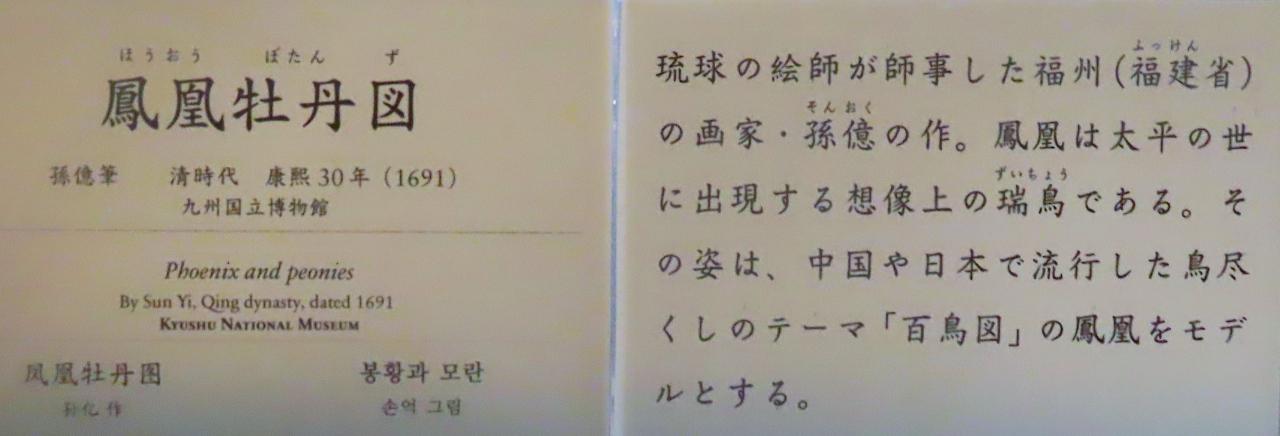 ほうおう ぼたん ず
鳳凰牡丹図
孫億筆 清時代 康熙30年（1691）
九州国立博物館
Phoenix and peonies
By Sun Yi, Qing dynasty, dated 1691
KYUSHU NATIONAL MUSEUM
凤凰牡丹图 봉황과 모란
作 손억 그림
ふっけん
琉球の絵師が師事した福州（福建省）
そんおく
の画家・孫億の作。鳳凰は太平の世
ずいちょう
に出現する想像上の瑞鳥である。そ
の姿は、中国や日本で流行した鳥尽
くしのテーマ「百鳥図」の鳳凰をモデ
ルとする。